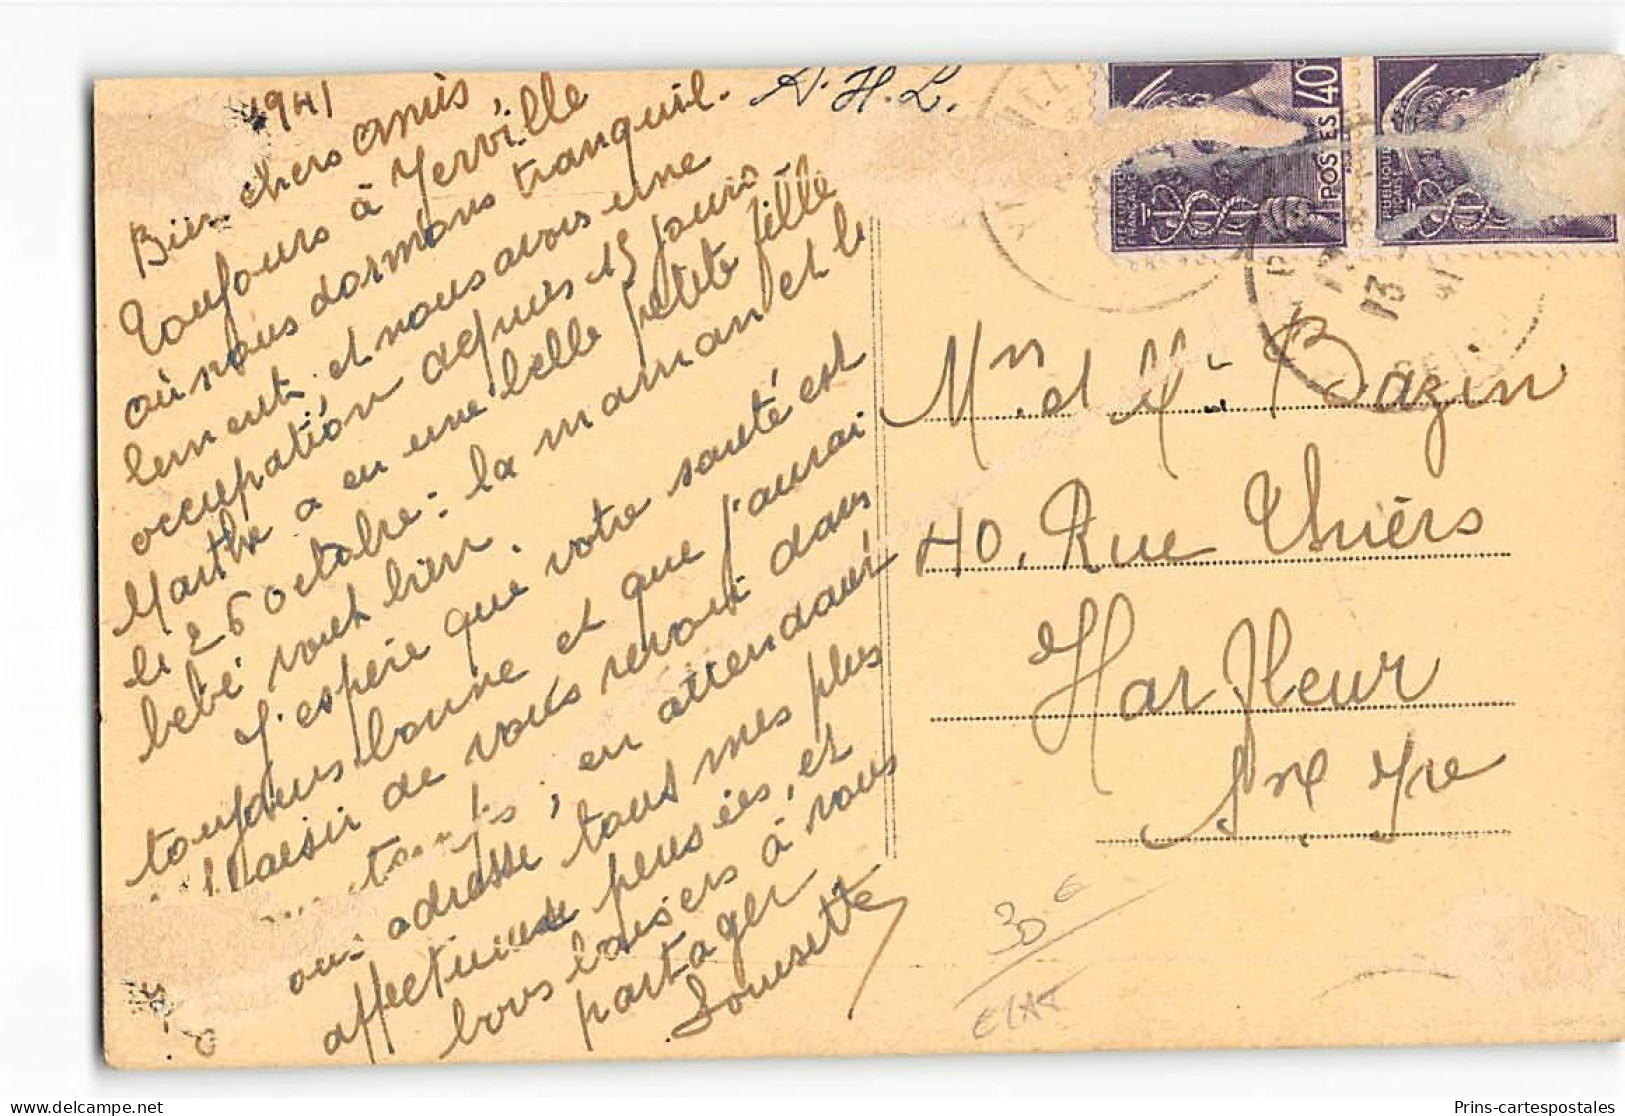 1941
A. H. L.
Bien chers amis,
Toujours à Yerville
où nous dormons tranquil-
lement, et nous avons une
occupation depuis 15 jours
Marthe a eu une belle petite fille
le 26 octobre : la maman et le
bébé vont bien.
J'espère que votre santé est
toujours bonne et que j'aurai
plaisir de vous revoir dans
temps, en attendant
adresse tous mes plus
affectueuses pensées, et
bons baisers à vous
partager
Lousette
40c
POSTES
40c
POSTES
RÉPUBLIQUE
FRANÇAISE
RÉPUBLIQUE
FRANÇAISE
13
41
Mn et Mr Bazin
40, Rue Thiers
Harfleur
Sne Ire
30 €
ECLAT
Prins-cartespostales